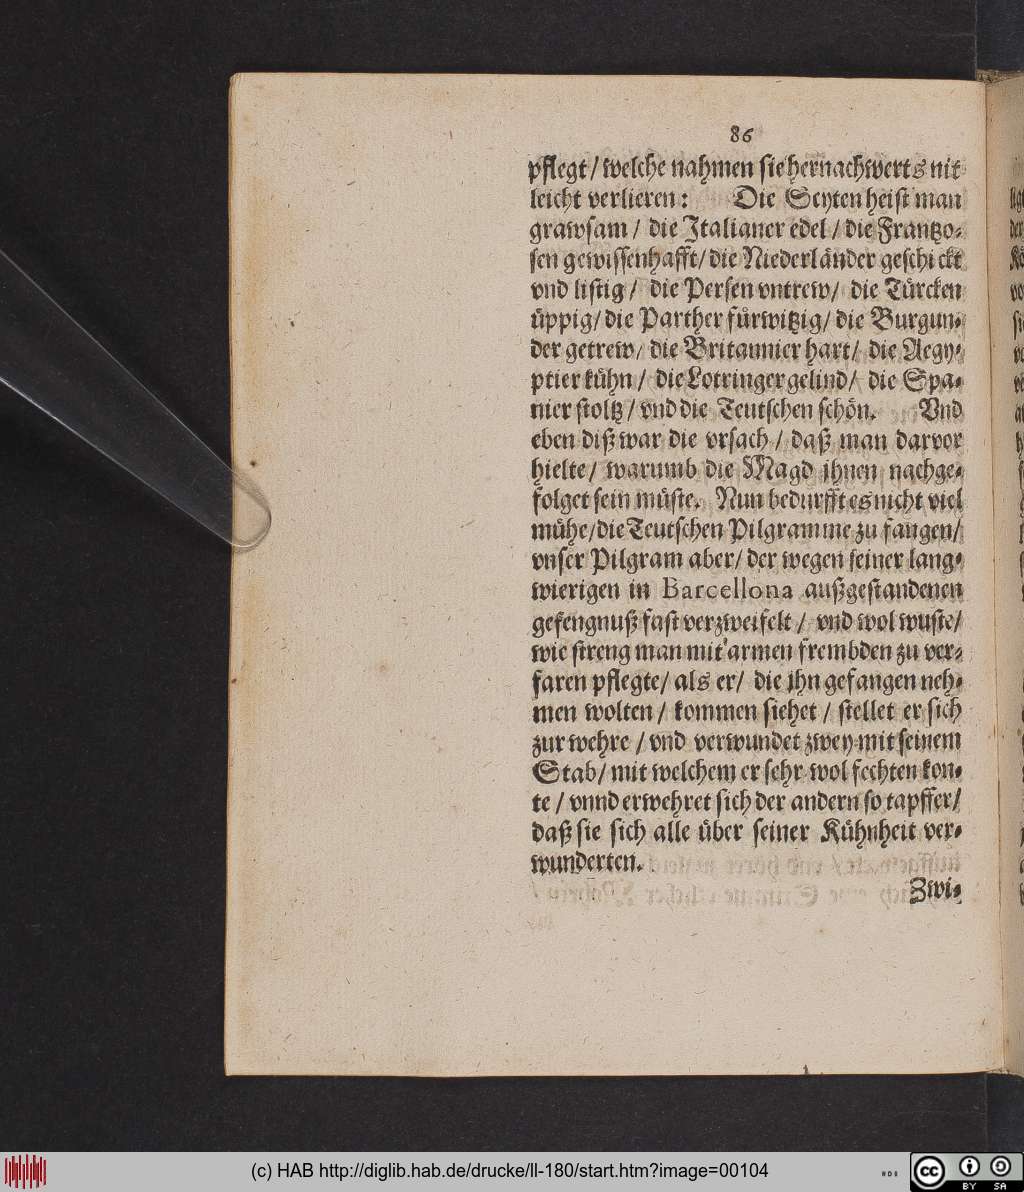 86
pflegt / welche nahmen sie hernachwerts nit
leicht verlieren: Die Scyten heist man
grawsam / die Italianer edel / die Frantzo-
sen gewissenhafft / die Niederländer geschickt
vnd listig / die Persen vntrew / die Türcken
üppig / die Parther fürwitzig / die Burgun-
der getrew / die Britannier hart / die Aegy-
ptier kühn / die Lotringer gelind / die Spa-
nier stoltz / vnd die Teutschen schön. Vnd
eben diß war die vrsach / daß man darvor
hielte / warumb die Magd ihnen nachge-
folget sein müste. Nun bedurfft es nicht viel
mühe / die Teutschen Pilgramme zu fangen /
vnser Pilgram aber / der wegen seiner lang-
wierigen in Barcellona außgestandenen
gefengnuß fast verzweifelt / vnd wol wuste /
wie streng man mit armen frembden zu ver-
faren pflegte / als er / die ihn gefangen neh-
men wolten / kommen siehet / stellet er sich
zur wehre / vnd verwundet zwey mit seinem
Stab / mit welchem er sehr wol fechten kon-
te / vnnd erwehret sich der andern so tapffer /
daß sie sich alle über seiner Kühnheit ver-
wunderten.
Zwi-
(c) HAB http://diglib.hab.de/drucke/ll-180/start.htm?image=00104
cc BY SA